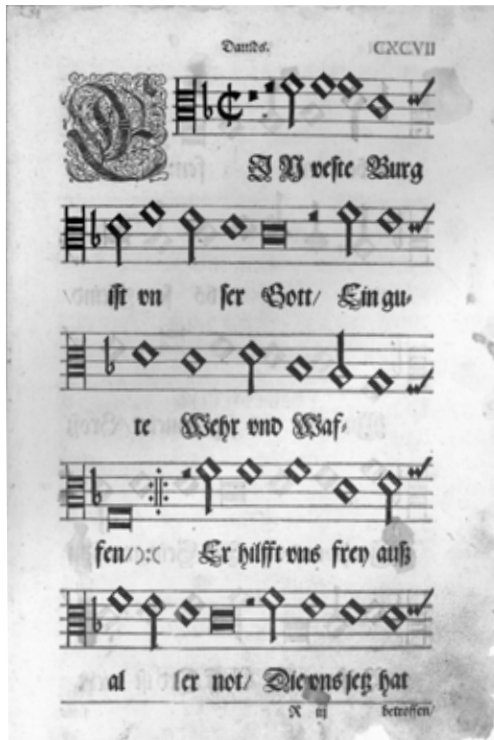 Dauids. CXCVII
EIN veste Burg
ist vn ser Gott/ Ein gu-
te Wehr vnd Waf-
fen/:C Er hilfft vns frey auß
al ler not/ Die vns jetz hat
R iij betroffen/